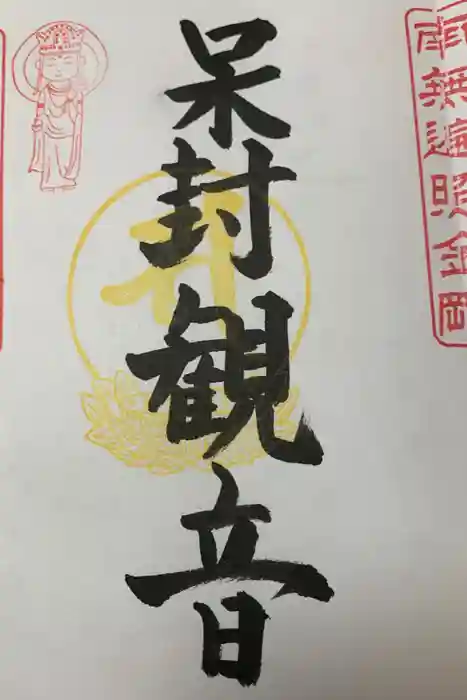 南無遍照金剛
呆封観音